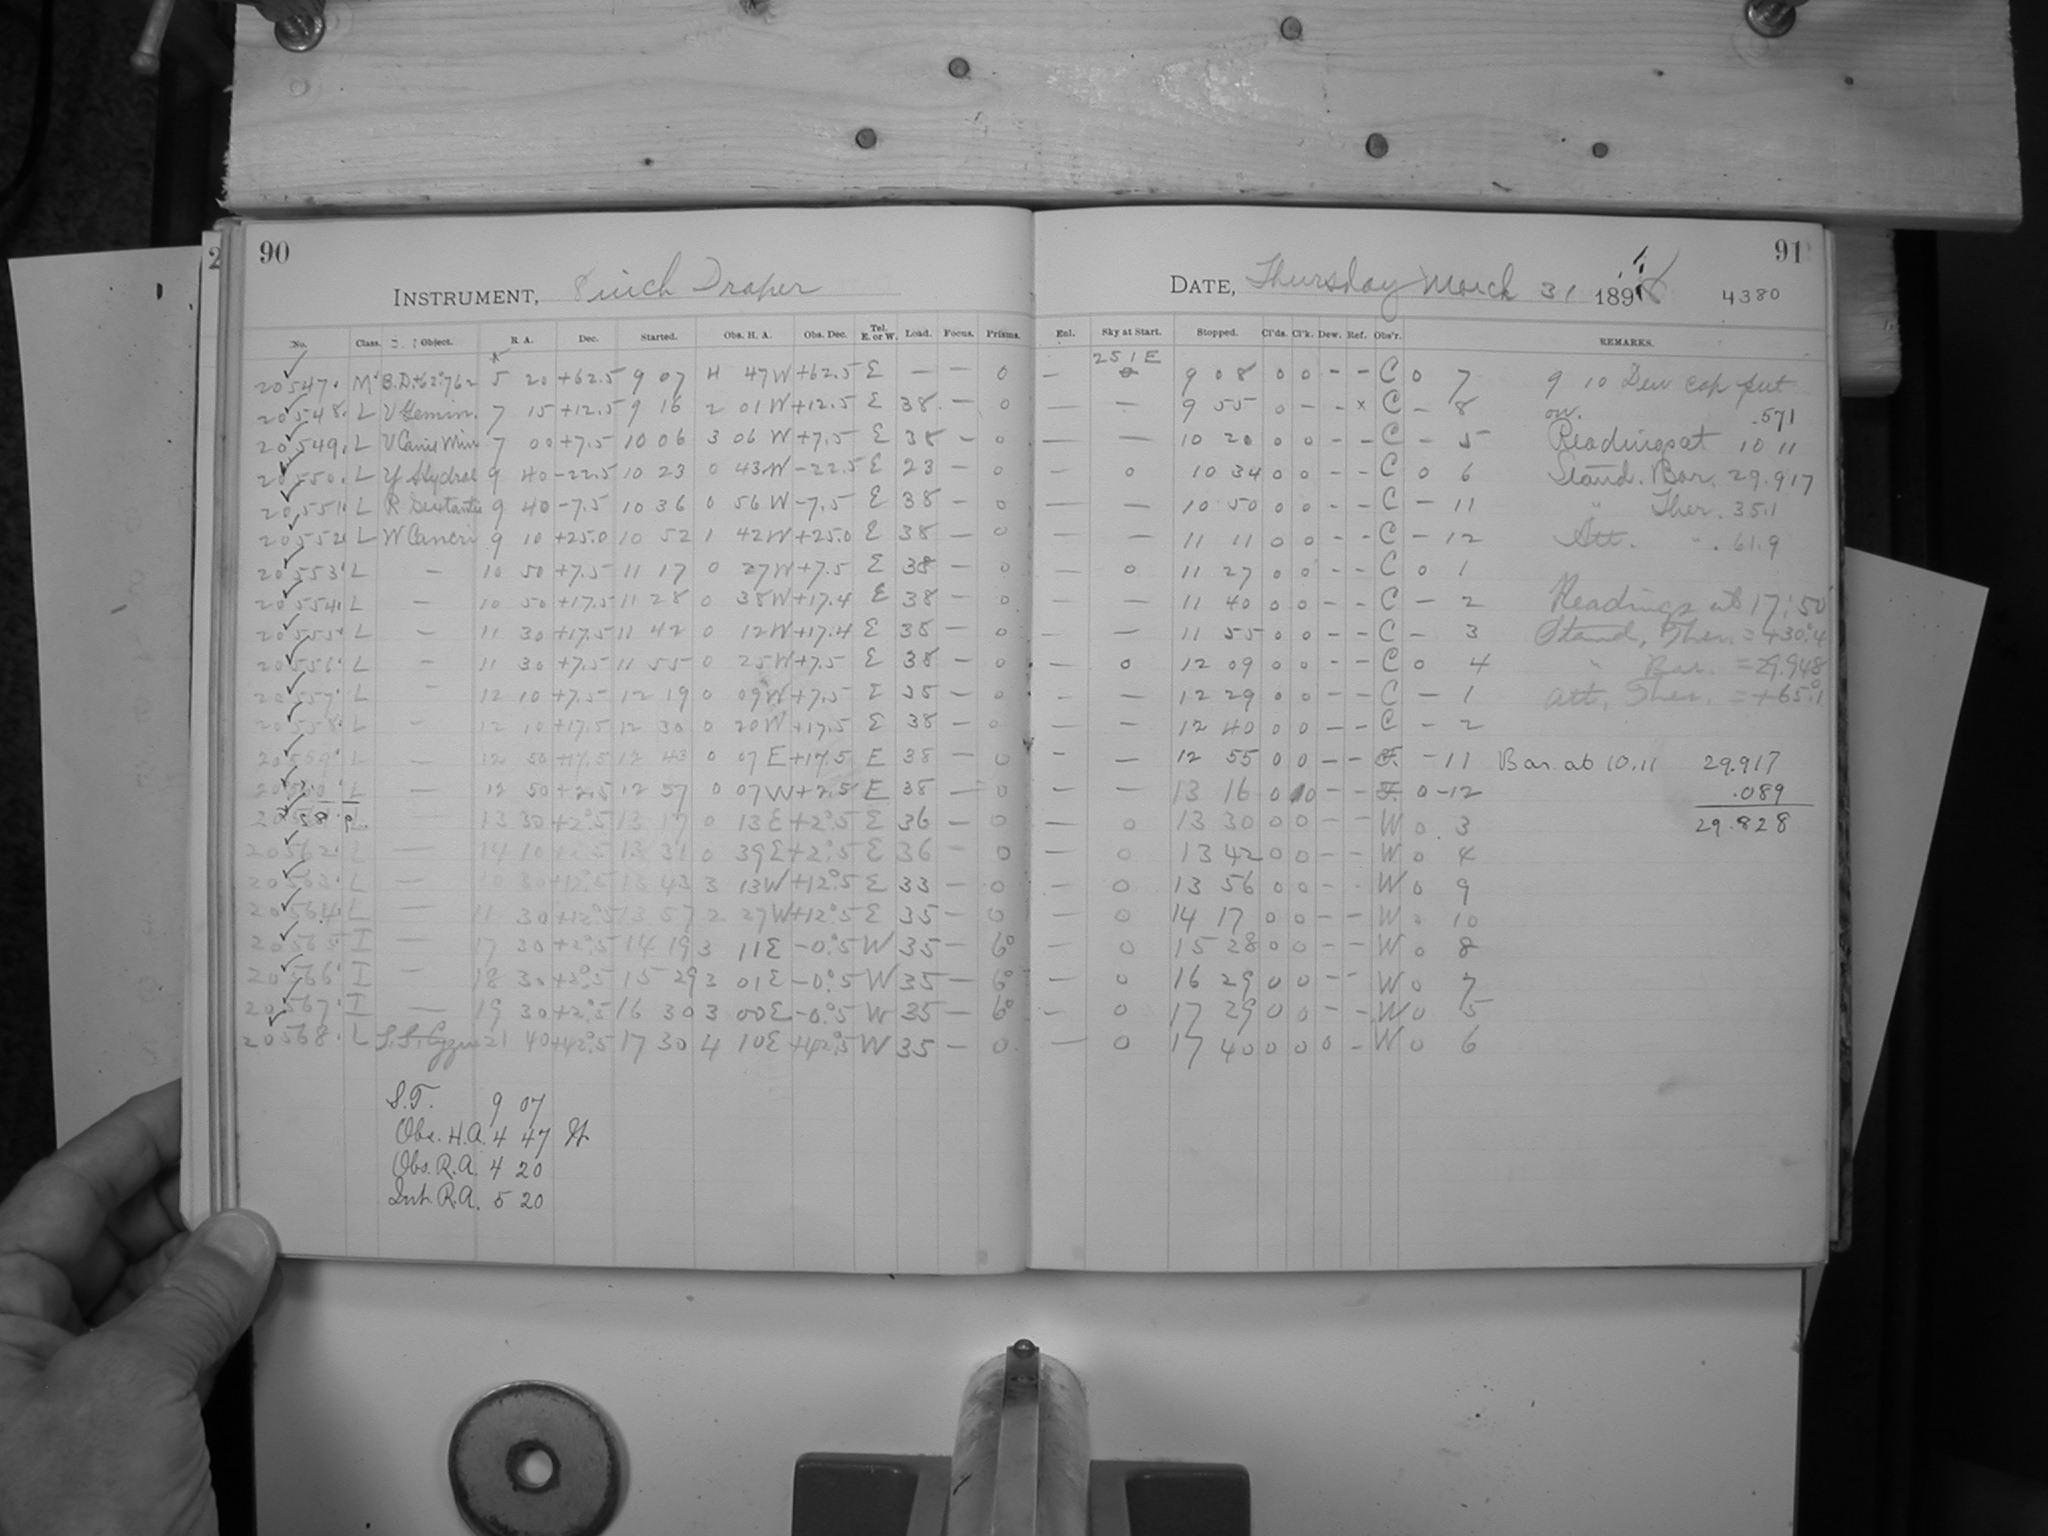 90
INSTRUMENT, 8 inch Draper
No. Class. Object. R. A. Dec. Started. Obs. H. A. Obs. Dec. Tel. E. or W. Load. Focus. Prisms.
20547 M B.D.+62°762 5 20 +62.5 9 07 4 47 W +62.5 E — — 0
20548 L U Gemin. 7 15 +12.5 9 16 2 01 W +12.5 E 38 — 0
20549 L V Canis Min 7 00 +7.5 10 06 3 06 W +7.5 E 38 — 0
20550 L Y Hydrae 9 40 -22.5 10 23 0 43 W -22.5 E 23 — 0
20551 L R Sextantis 9 40 -7.5 10 36 0 56 W -7.5 E 38 — 0
20552 L W Cancri 9 10 +25.0 10 52 1 42 W +25.0 E 38 — 0
20553 L — 10 50 +7.5 11 17 0 27 W +7.5 E 38 — 0
20554 L — 10 50 +17.5 11 28 0 38 W +17.4 E 38 — 0
20555 L — 11 30 +17.5 11 42 0 12 W +17.4 E 38 — 0
20556 L — 11 30 +7.5 11 55 0 25 W +7.5 E 38 — 0
20557 L — 12 10 +7.5 12 19 0 09 W +7.5 E 38 — 0
20558 L — 12 10 +17.5 12 30 0 20 W +17.5 E 38 — 0
20559 L — 12 50 +17.5 12 43 0 07 E +17.5 E 38 — 0
20560 L — 12 50 +2.5 12 57 0 07 W +2.5 E 38 — 0
L — 13 30 +2°.5 13 17 0 13 E +2°.5 E 36 — 0
20562 L — 14 10 +2°.5 13 31 0 39 E +2°.5 E 36 — 0
20563 L — 10 30 +12°.5 13 43 3 13 W +12°.5 E 33 — 0
20564 L — 11 30 +12°.5 13 57 2 27 W +12°.5 E 35 — 0
20565 I — 17 30 +2°.5 14 19 3 11 E -0°.5 W 35 — 6°
20566 I — 18 30 +2°.5 15 29 3 01 E -0°.5 W 35 — 6°
20567 I — 19 30 +2°.5 16 30 3 00 E -0°.5 W 35 — 6°
20568 L S.S. Cygni 21 40 +42°.5 17 30 4 10 E +42°.5 W 35 — 0
S.T. 9 07
Obs. H.A. 4 47 W
Obs. R.A. 4 20
Int. R.A. 5 20
91
DATE, Thursday March 31 1898 4380
Enl. Sky at Start. Stopped. Cl'ds. Cl'k. Dew. Ref. Obs'r. REMARKS.
251E
— 0 9 08 0 0 - - C 0 7 9 10 Dew cap put
— — 9 55 0 - - x C - 8 on. .571
— — 10 20 0 0 - - C - 5 Readings at 10 11
— 0 10 34 0 0 - - C 0 6 Stand. Bar. 29.917
— — 10 50 0 0 - - C - 11 " Ther. 35.1
— — 11 11 0 0 - - C - 12 Att. " . 61.9
— 0 11 27 0 0 - - C 0 1
— — 11 40 0 0 - - C - 2 Readings at 17:50
— — 11 55 0 0 - - C - 3 Stand, Ther. = +30°.4
— 0 12 09 0 0 - - C 0 4 " Bar. = 29.948
— — 12 29 0 0 - - C - 1 Att, Ther. = +65°.1
— — 12 40 0 0 - - C - 2
— — 12 55 0 0 - - F. - 11 Bar. at 10.11 29.917
— — 13 16 0 10 - - F. 0 - 12 .089
— 0 13 30 0 0 - - W 0 3 29.828
— 0 13 42 0 0 - - W 0 4
— 0 13 56 0 0 - - W 0 9
— 0 14 17 0 0 - - W 0 10
— 0 15 28 0 0 - - W 0 8
— 0 16 29 0 0 - - W 0 7
— 0 17 29 0 0 - - W 0 5
— 0 17 40 0 0 0 - W 0 6